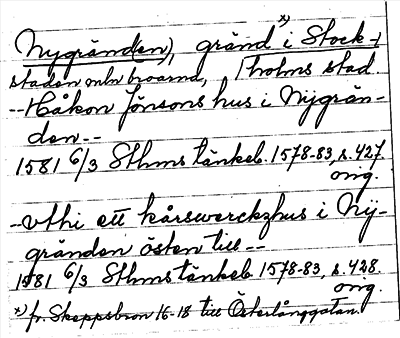 Nygränd(en), gränd x) i Stock-
staden mln broarna, holms stad.
-- Håkon Jönsons hus i Nygrän-
den --
1581 6/3 Sthms tänkeb. 1578-83, s. 427.
orig.
-- vthi ett kårswerckzhus i Nÿ-
gränden östen till --
1581 6/3 Sthms tänkeb. 1578-83, s. 428.
orig.
x) fr. Skeppsbron 16-18 till Österlånggatan.